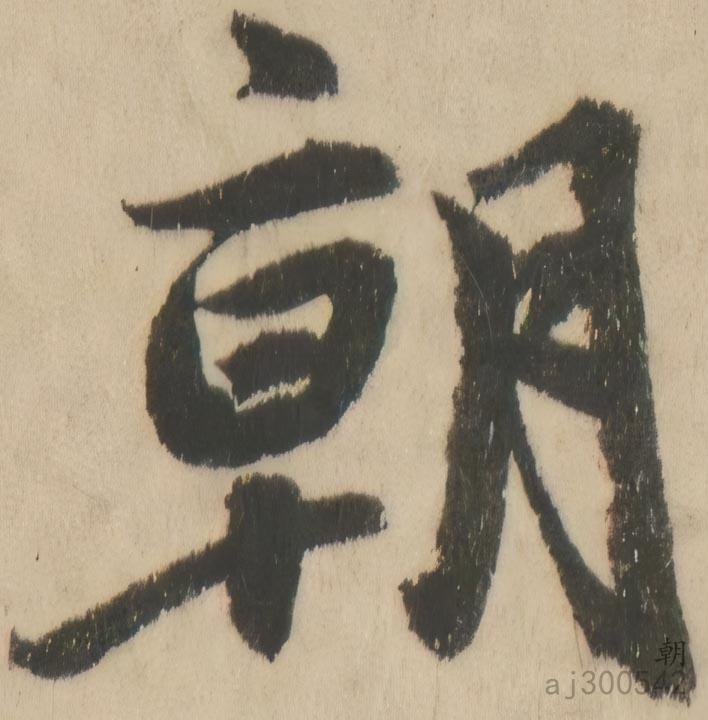 朝
朝
aj300542